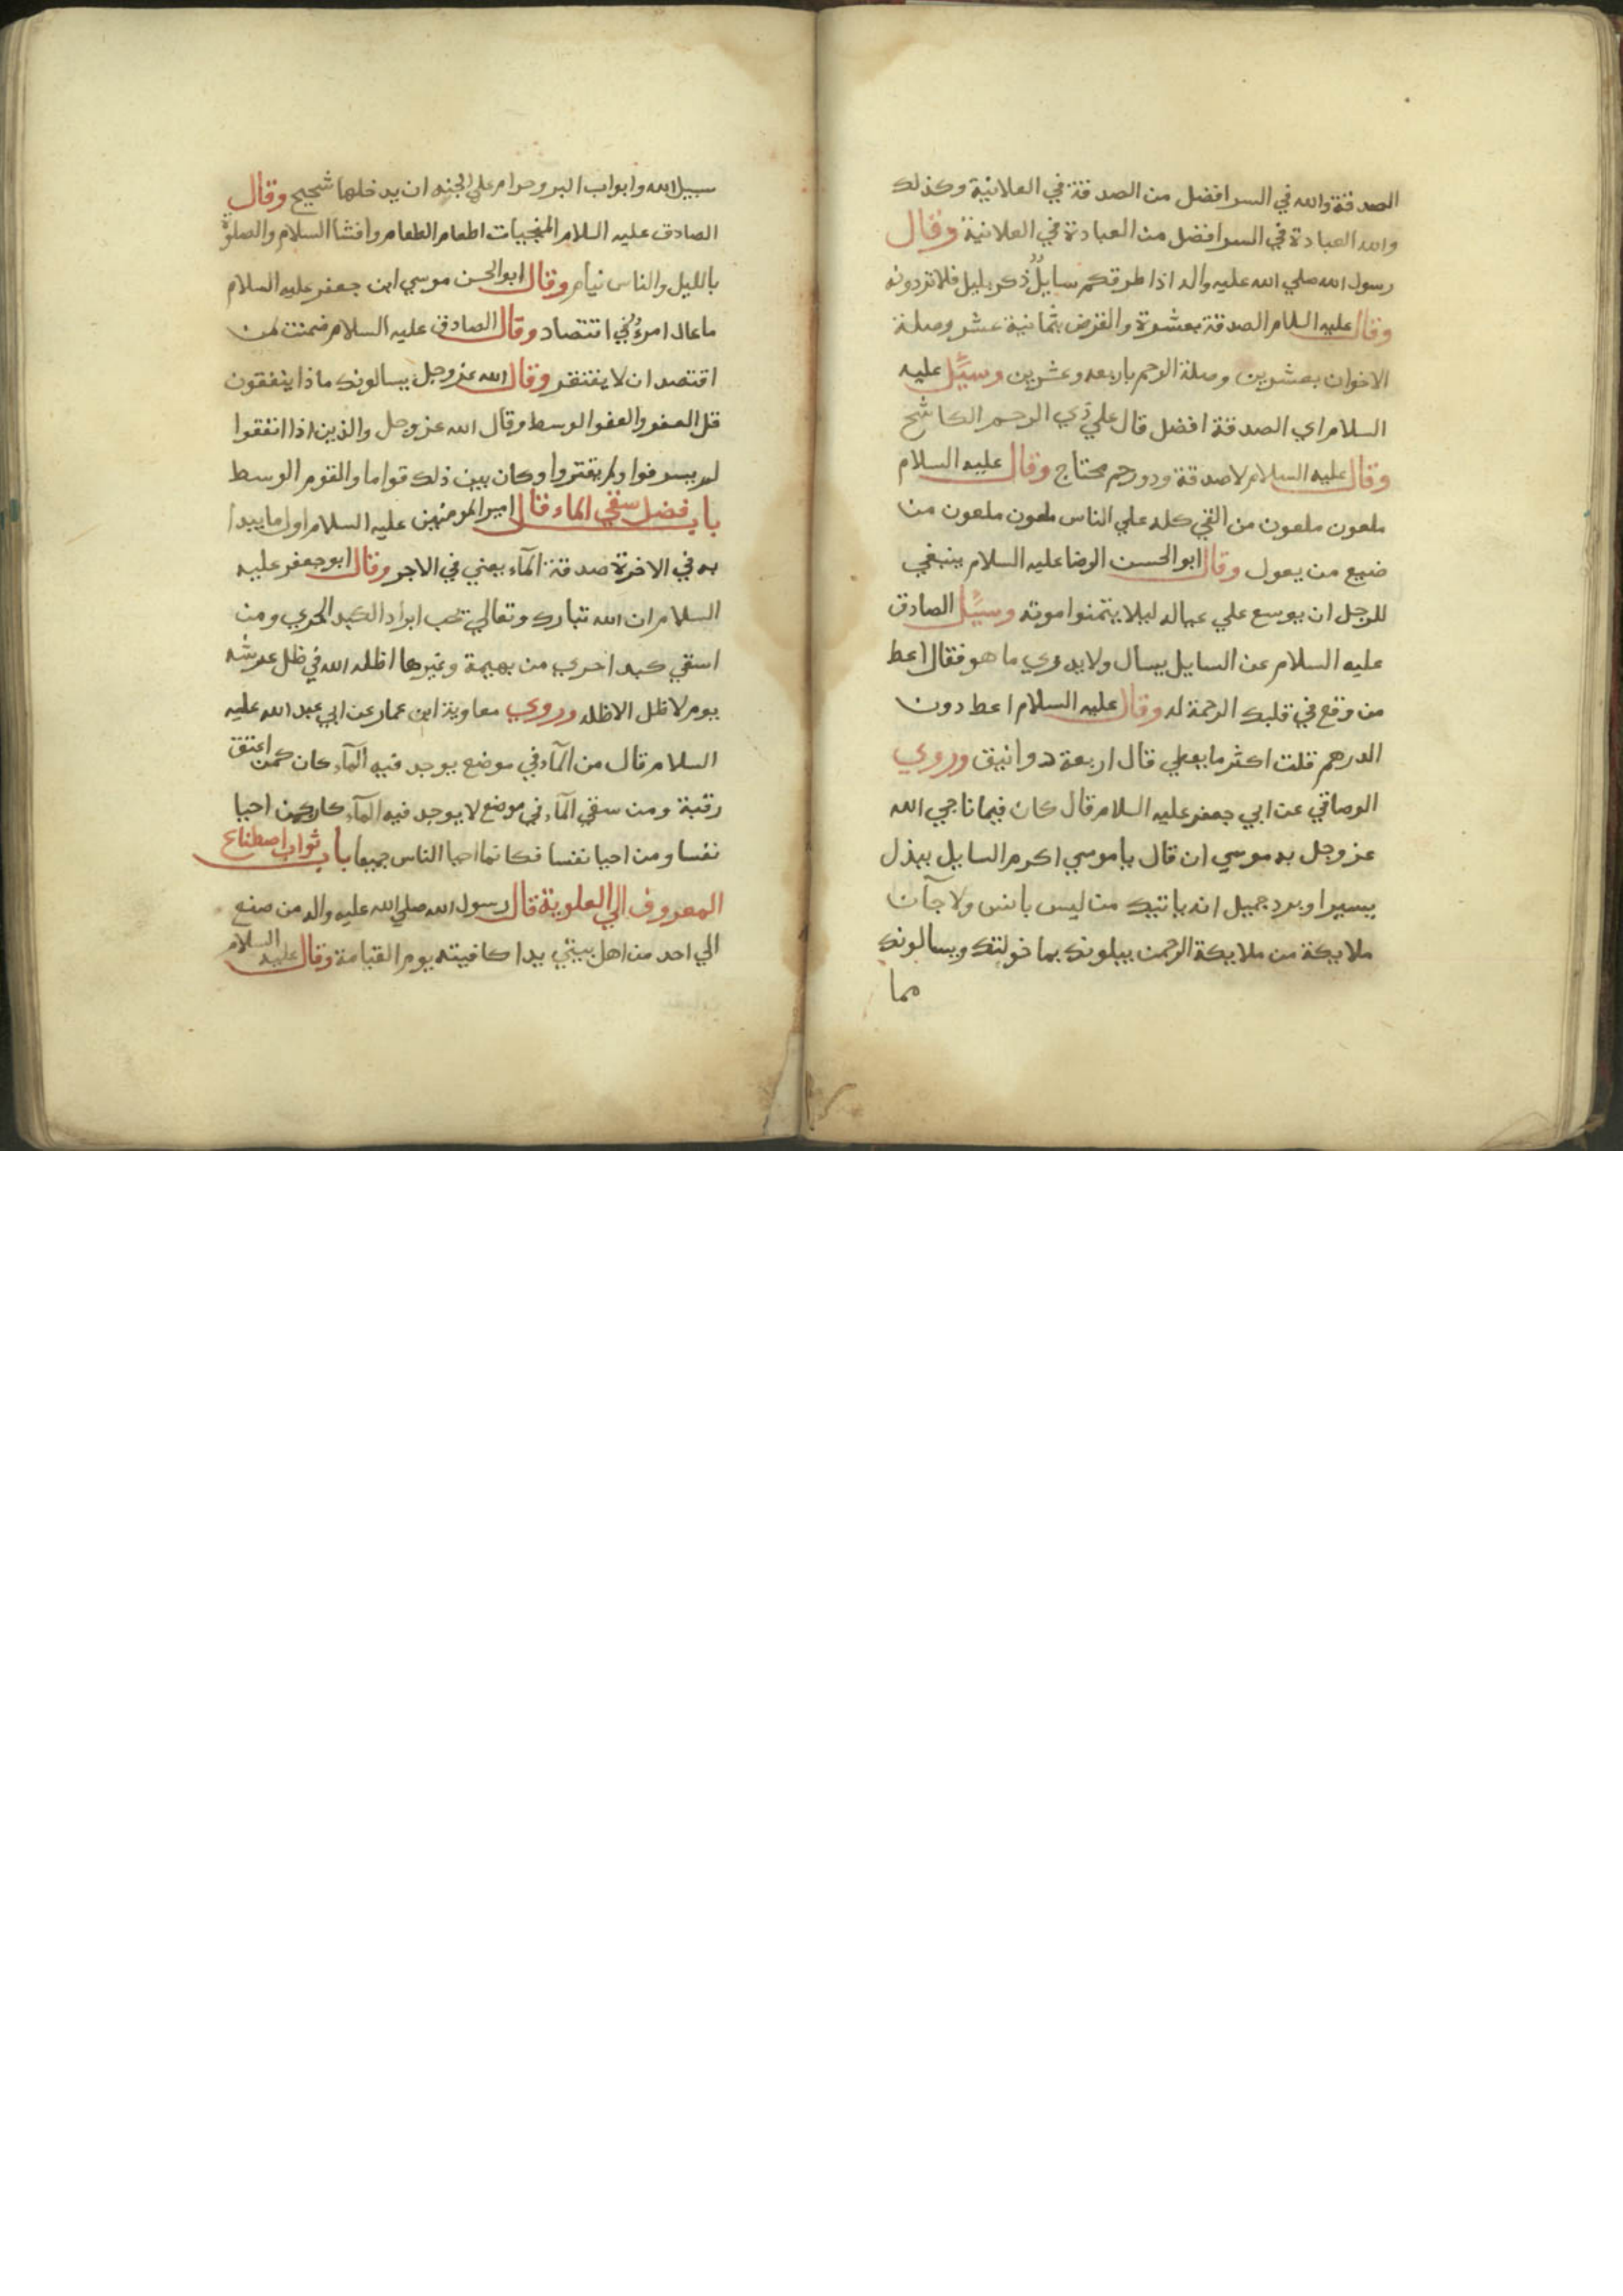 الصدقة والله في السر افضل من الصدقة في العلانية وكذلك
والله العبادة في السر افضل من العبادة في العلانية وقال
رسول الله صلي الله عليه واله اذا طرقكم سايلٌ ذكر بليل فلا تردونه
وقال عليه السلام الصدقة بعشرة والقرض بثمانية عشر وصلة
الاخوان بعشرين وصلة الرحم باربعه وعشرين وسيّل عليه
السلام اي الصدقة افضل قال علي ذي الرحم الكاشح
وقال عليه السلام لا صدقة وذو رحم محتاج وقال عليه السلام
ملعون ملعون من القي كله علي الناس ملعون ملعون من
ضيع من يعول وقال ابو الحسن الرضا عليه السلام ينبغي
للرجل ان يوسع علي عياله ليلا يتمنوا موته وسيّل الصادق
عليه السلام عن السايل يسال ولا يدري ما هو فقال اعط
من وقع في قلبك الرحمة له وقال عليه السلام اعط دون
الدرهم قلت اكثر ما يعطي قال اربعة دوانيق وروي
الوصافي عن ابي جعفر عليه السلام قال كان فيما ناجي الله
عز وجل به موسي ان قال يا موسي اكرم السايل ببذل
يسير او برد جميل انه ياتيك من ليس بانس ولا جآن
ملايكة من ملايكة الرحمن يبلونك بما خولتك ويسالونك
مما
سبيل الله وابواب البر وحرام علي الجنه ان يدخلها شحيح وقال
الصادق عليه السلام المنجيات اطعام الطعام وافشا السلام والصلوة
بالليل والناس نيام وقال ابو الحسن موسي ابن جعفر عليه السلام
ما عال امرءٌ في اقتصاد وقال الصادق عليه السلام ضمنت لمن
اقتصد ان لا يفتقر وقال الله عز وجل يسالونك ماذا ينفقون
قل العفو والعفو الوسط وقال الله عز وجل والذين اذا انفقوا
لم يسرفوا ولم يقتروا وكان بين ذلك قواما والقوم الوسط
باب فضل سقي الماء قال امير المومنين عليه السلام اول ما يبدا
به في الاخرة صدقة المآء يعني في الاجر وقال ابو جعفر عليه
السلام ان الله تبارك وتعالي يحب ابراد الكبد الحري ومن
اسقي كبد احري من بهيمة وغيرها اظله الله في ظل عرشه
يوم لا ظل الا ظله وروي معاوية ابن عمار عن ابي عبد الله عليه
السلام قال من المآء في موضع يوجد فيه المآء كان كمن اعتق
رقبة ومن سقي المآء في موضع لا يوجد فيه المآء كان كمن احيا
نفسا ومن احيا نفسا فكانما احيا الناس جميعا باب ثواب اصطناع
المعروف الي العلوية قال رسول الله صلي الله عليه واله من صنع
الي احد من اهل بيتي يدا كافيته يوم القيامة وقال عليه السلام